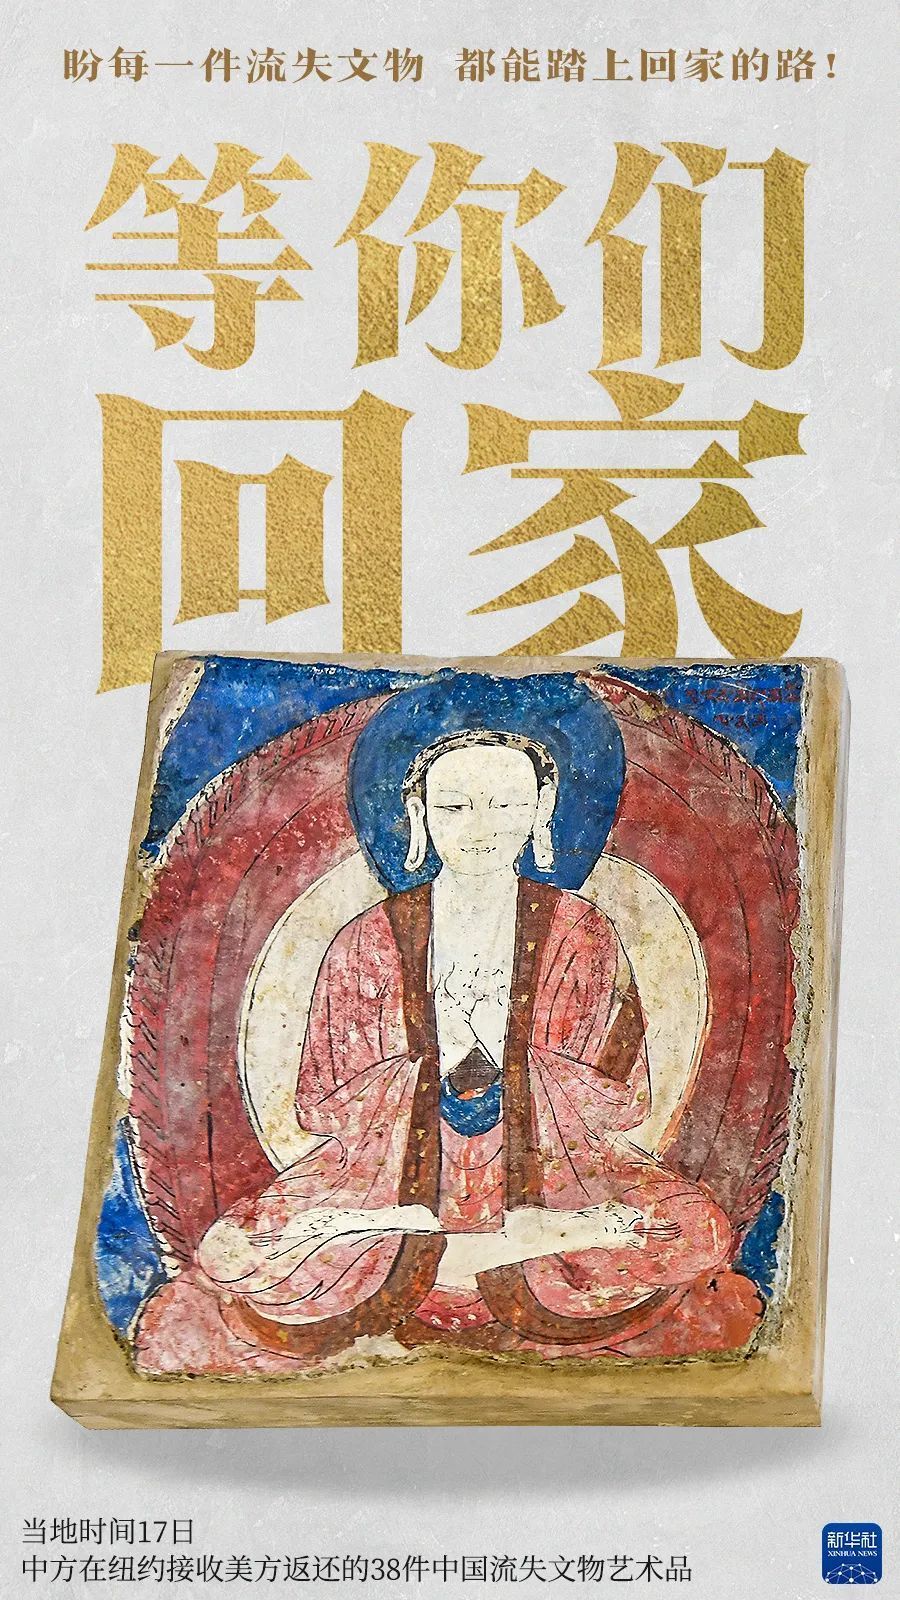 盼每一件流失文物 都能踏上回家的路!
等你们
回家
当地时间17日
中方在纽约接收美方返还的38件中国流失文物艺术品
新华社
XINHUA NEWS